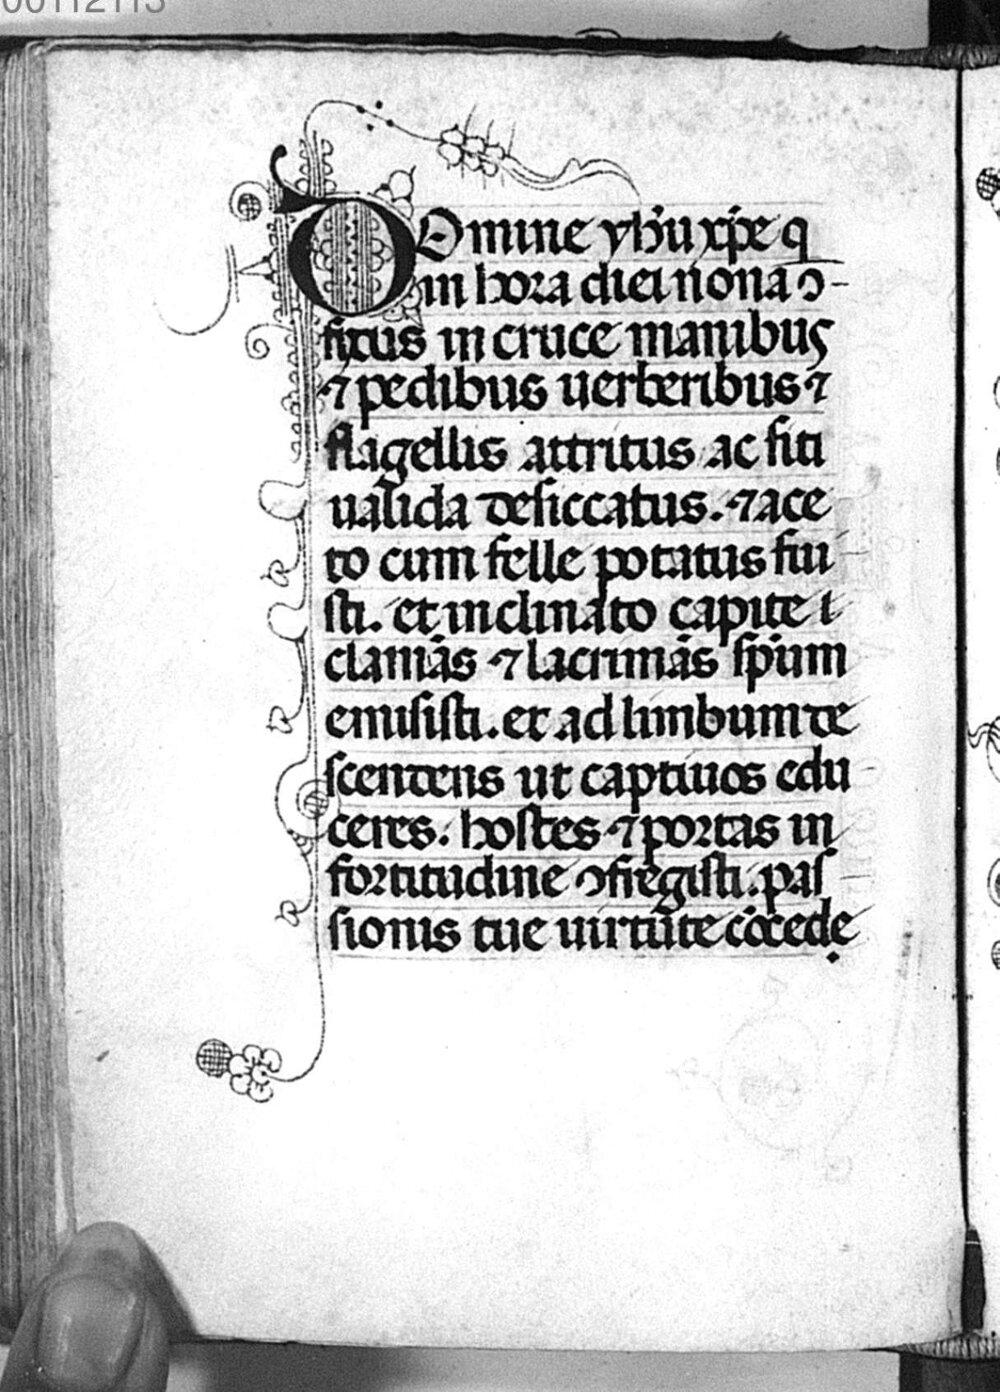 00112113
DOmine yhu xpe q
in hora diei nona ↄ-
fixus in cruce manibus
⁊ pedibus uerberibus ⁊
flagellis attritus ac siti
ualida desiccatus. ⁊ ace
to cum felle potatus fui
sti. et inclinato capite i
clamās ⁊ lacrimās sp̄um
emisisti. et ad limbum de
scendens ut captiuos edu
ceres. hostes ⁊ portas in
fortitudine ↄfregisti. pas
sionis tue uirtute cōcede